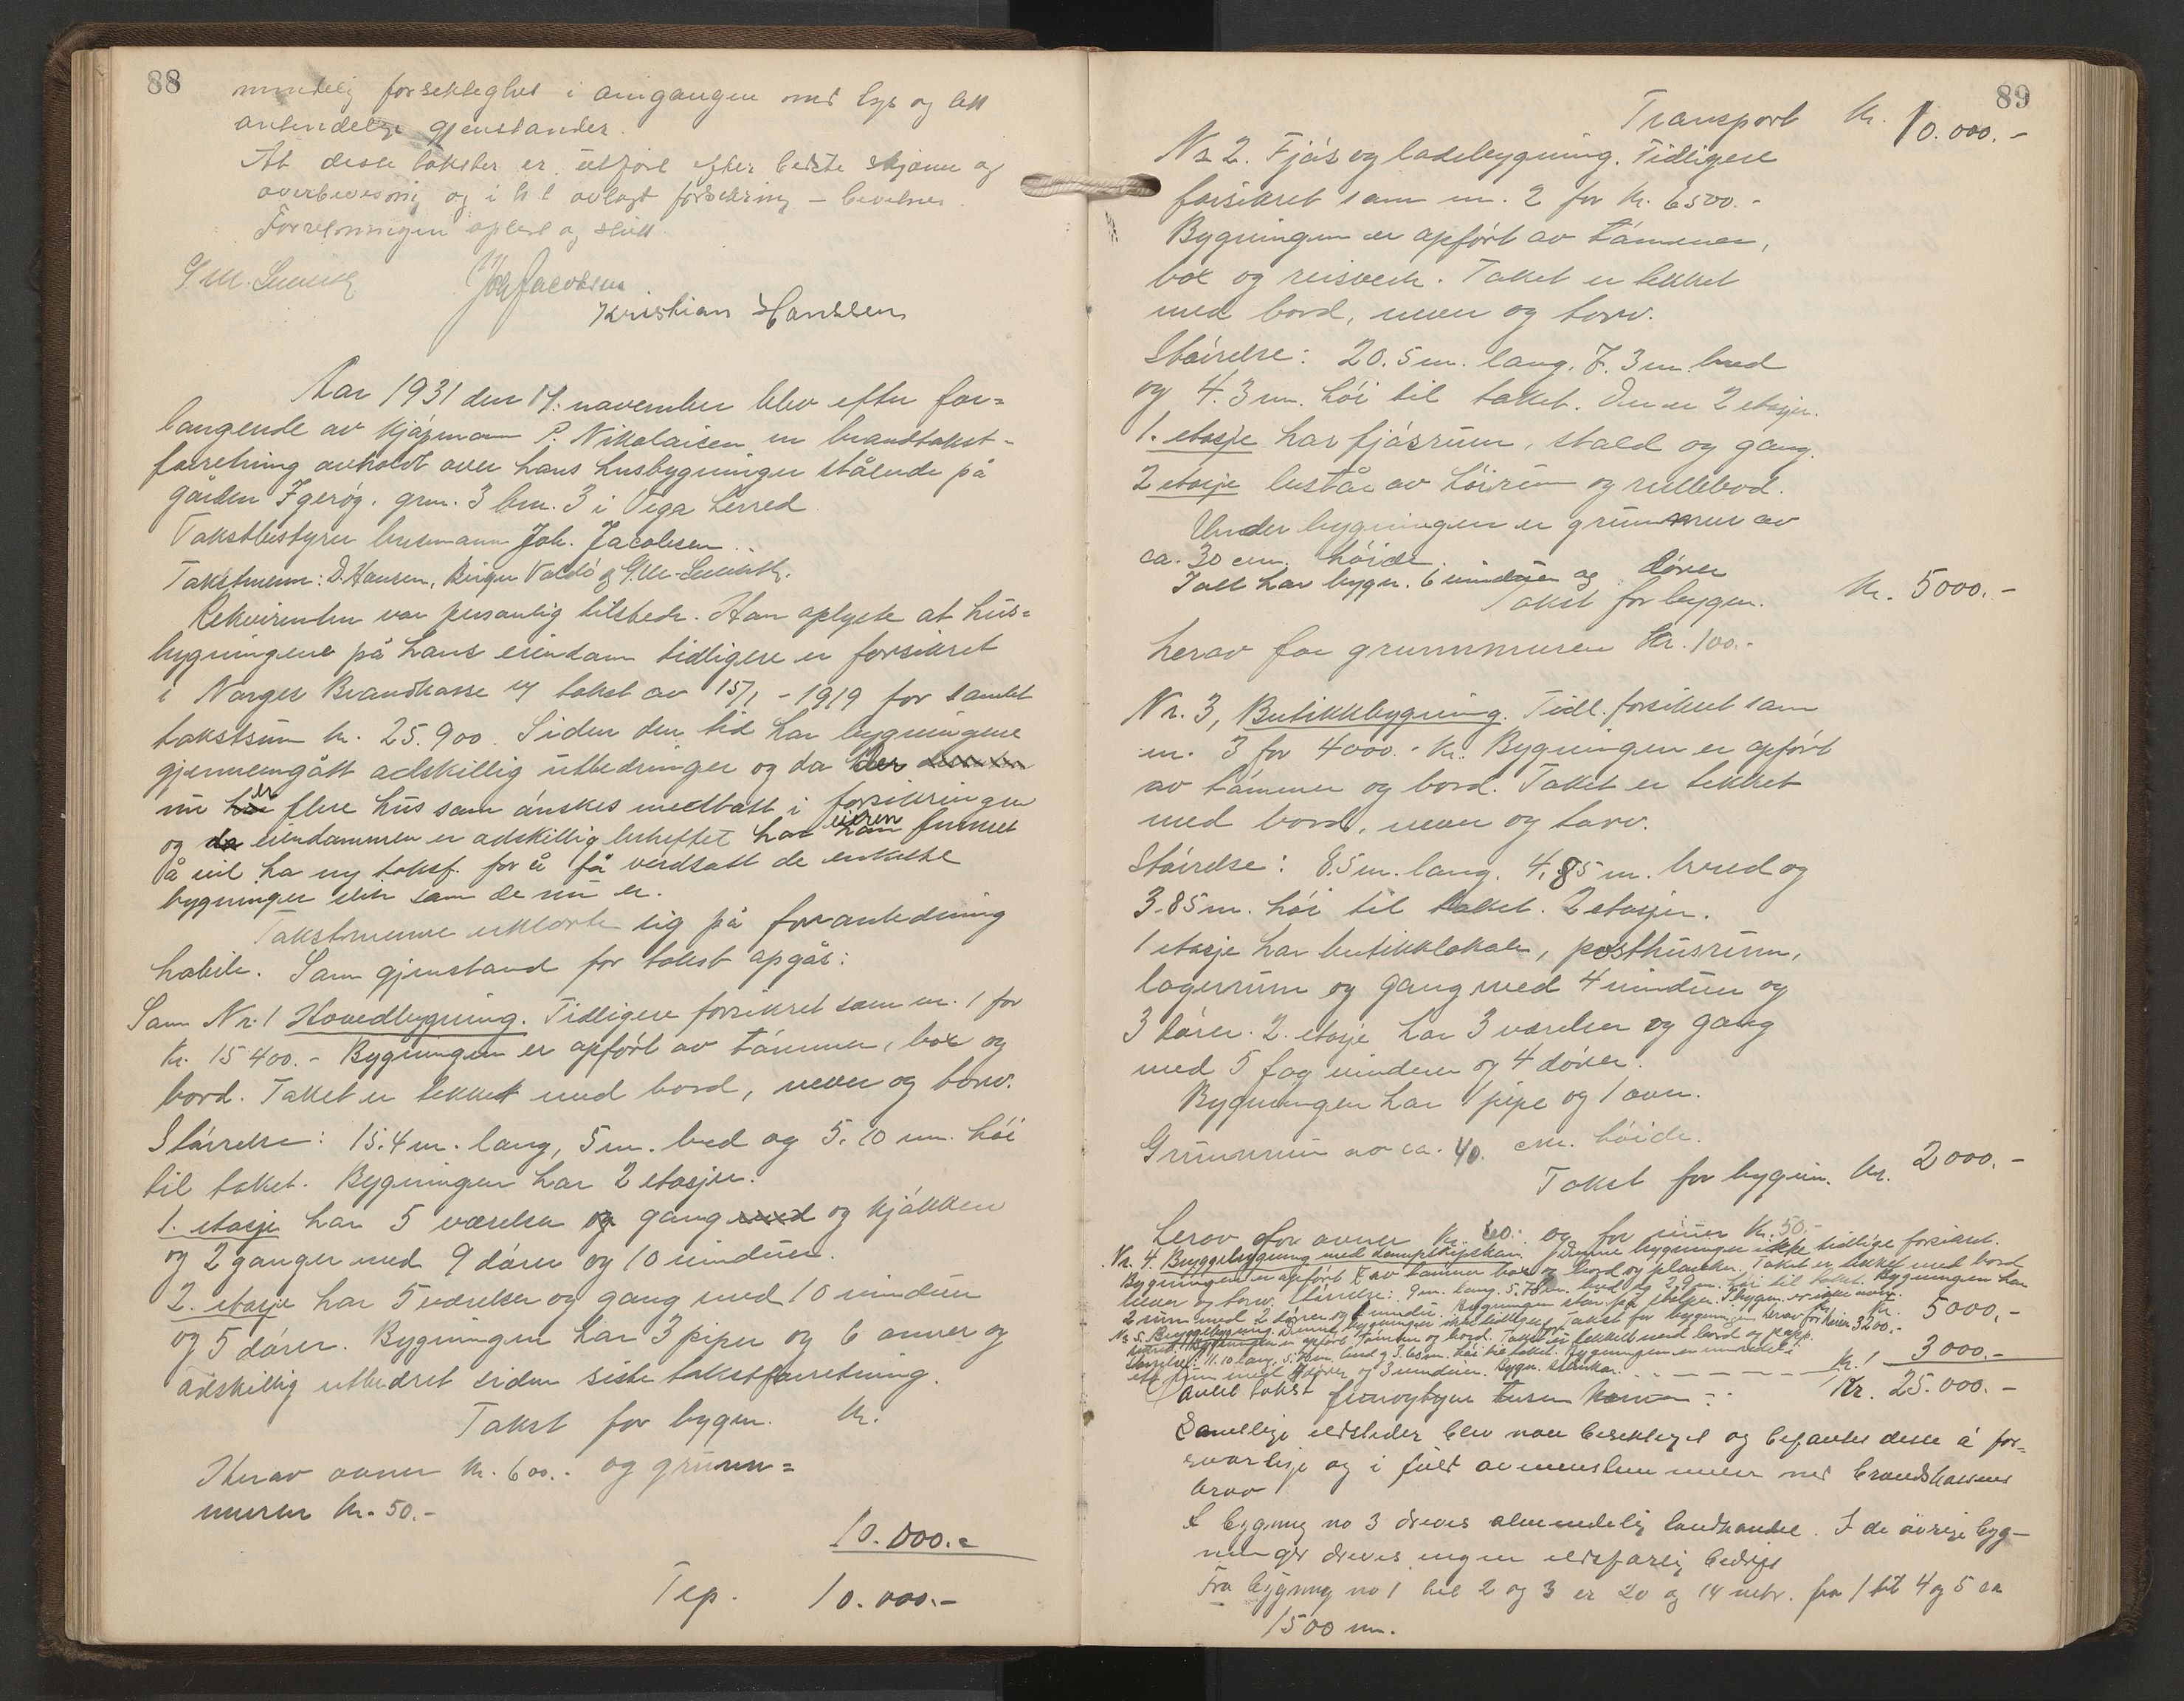 88
forsiktighet i omgangen med lys og lett
antendelige gjenstander.
At disse takster er utført efter beste skjønn og
overbevisning og i h.t. avlagt forsikring – bevitnes.
Forretningen oplest og slutt.
Joh Jacobsen
Kristian Hansen
Aar 1931 den 14. november blev efter for=
langende av kjøpmann P. Nikolaisen en brandtakst-
forretning avholdt over hans husbygninger stående på
gården Igerøy. grn. 3 brn. 3 i Vega herred
Takstbestyrer lensmann Joh. Jacobsen
Takstmenn: D. Hansen, Birger Valdø og
Rekvirenten var personlig tilstede. Han oplyste at hus=
bygningene på hans eiendom tidligere er forsikret
i Norges Brandkasse ved takst av 15/1 - 1919 for samlet
takstsum kr. 25.900. Siden den tid har bygningene
gjennemgått adskillig utbedringer og da der
nu er flere hus som ønskes medtatt i forsikringen
og eiendommen er adskillig beheftet har eieren funnet
å vil ha ny takst. for å få verdsatt de enkelte
bygninger slik som de nu er.
Takstmenne erklærte sig på foranledning
habile. Som gjenstand for takst opgås:
Som Nr. 1 Hovedbygning. Tidligere forsikret som nr. 1 for
Kr. 15400.- Bygningen er opført av tømmer, box og
bord. Taket er tekket med bord, never og torv.
Størrelse: 15.4 m. lang, 5 m. bred og 5.10 m. høi
til taket. Bygningen har 2 etasjer.
1. etasje har 5 værelser og gang med og kjøkken
og 2 ganger med 9 dører og 10 vinduer.
2. etasje har 5 værelser og gang med 10 vinduer
og 5 dører. Bygningen har 3 piper og 6 ovner og
adskillig utbedret siden siste takstforretning.
Takst for bygn. kr.
Herav ovner kr. 600.- og grunn=
murer kr. 50.-
10.000.-
Trp. 10.000.-
89
Transport kr. 10.000.-
Nr 2. Fjøs og ladebygning. Tidligere
forsikret som nr. 2 for kr. 6500.-
Bygningen er opført av tømmer,
box og reisverk. Taket er tekket
med bord, never og torv.
Størrelse: 20.5 m. lang, 7.3 m. bred
og 4.3 m. høi til taket. Den er 2 etasjer.
1. etasje har fjøsrum, stald og gang.
2 etasje består av høirum og rullebod.
Under bygningen er grunnmur av
ca. 30 cm. høide.
I alt har bygn. 6 vinduer og dører
Takst for bygn. kr. 5000.-
herav for grunnmuren Kr. 100.-
Nr. 3, Butikkbygning. Tidl. forsikret som
nr. 3 for 4000.- kr. Bygningen er opført
av tømmer og bord. Taket er tekket
med bord, never og torv.
Størrelse: 8.5 m. lang. 4,85 m. bred og
3.85 m. høi til taket. 2 etasjer.
1 etasje har butikklokale, posthusrum,
lagerrum og gang med 4 vinduer og
3 dører. 2. etasje har 3 værelser og gang
med 5 fag vinduer og 4 dører.
Bygningen har 1 pipe og 1 ovn.
Grunnmur av ca. 40 cm. høide.
Takst for bygnin. kr. 2000.-
herav for ovner kr. 60.- og for murer kr. 50.-
Nr. 4. Bryggebygning med dampskipskai. Denne bygninger ikke tidlige forsikret.
Bygningen er opført av tømmer box og bord og planker. Taket er tekket med bord
never og torv. Størrelse: 9 m. lang. 5.70 m. bred og 2.9 m. høi til taket. Bygningen har
2 rum med 2 dører og vindu. Bygningen står på stolper. I bygn. er ikke ovn.
Takst for bygningen herav for kaien 3200.- kr. 5000.-
Nr. 5. Bryggebygning. Denne bygninger ikke tidligere
sikret. Bygningen er opført tømmer og bord. Taket er tekket med bord og papp.
Størrelse: 11.10 lang, bred og 3.60 m. høi til taket. Bygningen er innredet i
ett rum med dører og 3 vinduer. kr. 3000.-
Samlet takst femogtyve tusen kroner kr. 25.000.-
Samtlige ildsteder blev nøie besiktiget og befantes disse å for=
svarlige og i full overensstemmelse med brandskassens
krav
I bygning no 3 drives almindelig landhandel. I de øvrige byg-
ninger drives ingen ildsfarlig bedrift
Fra bygning no 1 til 2 og 3 er 20 og 14 metr. fra 1 til 4 og 5 ca
1500 m.